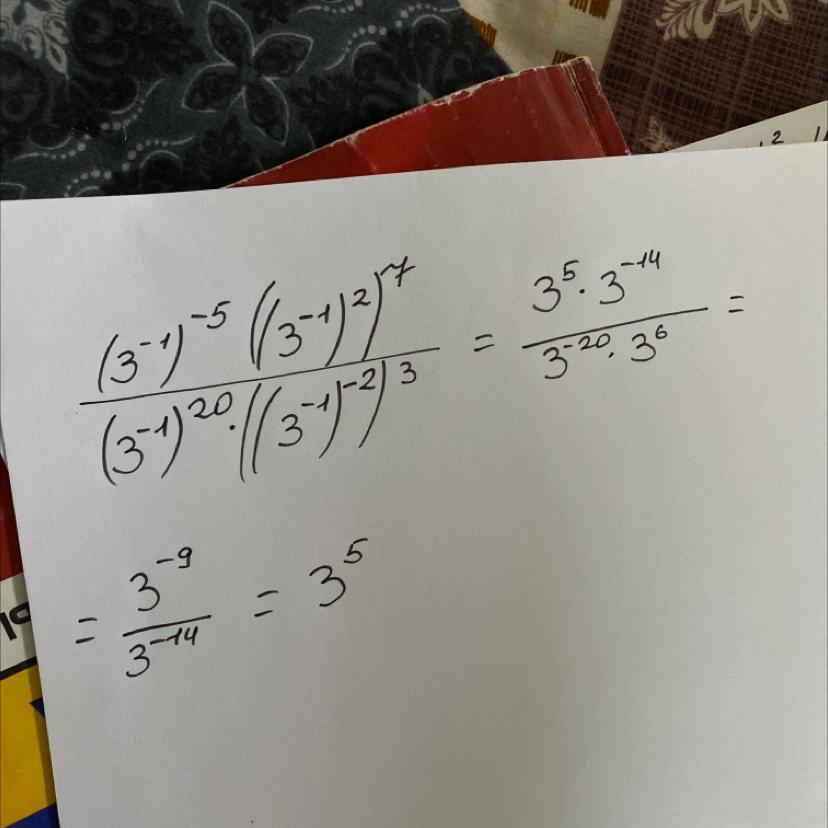 (3⁻¹)⁻⁵ ((3⁻¹)²)⁷ / (3⁻¹)²⁰·((3⁻¹)⁻²)³ = 3⁵·3⁻¹⁴ / 3⁻²⁰·3⁶ =
= 3⁻⁹ / 3⁻¹⁴ = 3⁵